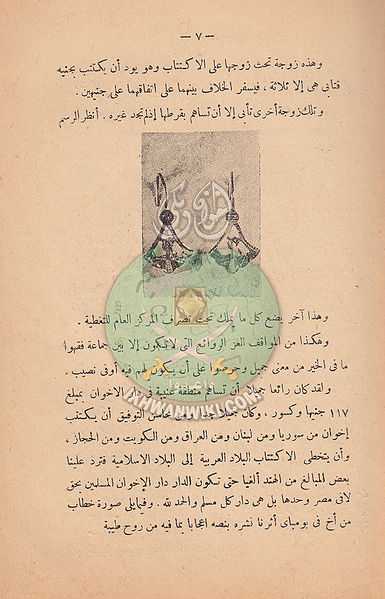 — ٧ —
وهذه زوجة تحث زوجها على الاكتتاب وهو يود أن يكتتب بجنيه
فتابى هى إلا ثلاثة ، فيسفر الخلاف بينهما على اتفاقهما على جنيهين .
وتلك زوجة أخرى تأبى إلا أن تساهم بقرطها إذ لم تجد غيره . أنظر الرسم
إخوان ويكي
وهذا آخر يضع كل ما يملك تحت تصرف المركز العام للتغطية .
وهكذا من المواقف الغر الروائع التى لا تكون إلا بين جماعة فقهوا
ما فى الخير من معنى جميل وحرصوا على أن يكون لهم فيه أوفى نصيب .
ولقد كان رائعا جميلا أن تساهم منطقة فى الاخوان بمبلغ
١١٧ جنيها وكسور ، وكان جميلا التوفيق أن يكتتب
إخوان من سوريا ومن لبنان ومن العراق ومن الكويت ومن الحجاز ،
وأن يتخطى الاكتتاب البلاد العربية إلى البلاد الاسلامية فترد علينا
بعض المبالغ من الهند ألفيا حتى تكون الدار دار الإخوان المسلمين بحق
لا فى مصر وحدها بل هى دار كل مسلم والحمد لله . وفيما يلى صورة خطاب
من أخ فى بومباى أثرنا نشره بنصه اعجابا بما فيه من روح طيبة
وأعدوا
IKHWANWIKI.COM